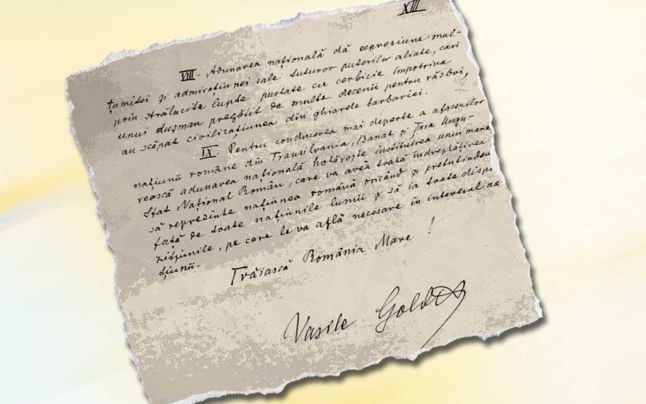 XIII
VIII. Adunarea națională dă expresiune mul-
țumitei și admirațiunei sale tuturor puterilor aliate, cari
prin strălucite lupte purtate cu cerbicie împotriva
unui dușman pregătit de multe decenii pentru războiu,
au scăpat civilizațiunea din ghiarele barbariei.
IX. Pentru conducerea mai departe a afacerilor
națiunii române din Transilvania, Banat și Țara Ungu-
rească adunarea națională hotărește instituirea unui mare
Stat Național Român, care va avea toată îndreptățirea
să reprezinte națiunea română oricând și pretutindeni
față de toate națiunile lumii și să ia toate dispo
zițiunile, pe care le va află necesare în interesul na
țiunii.
Trăiască România Mare!
Vasile Goldiș